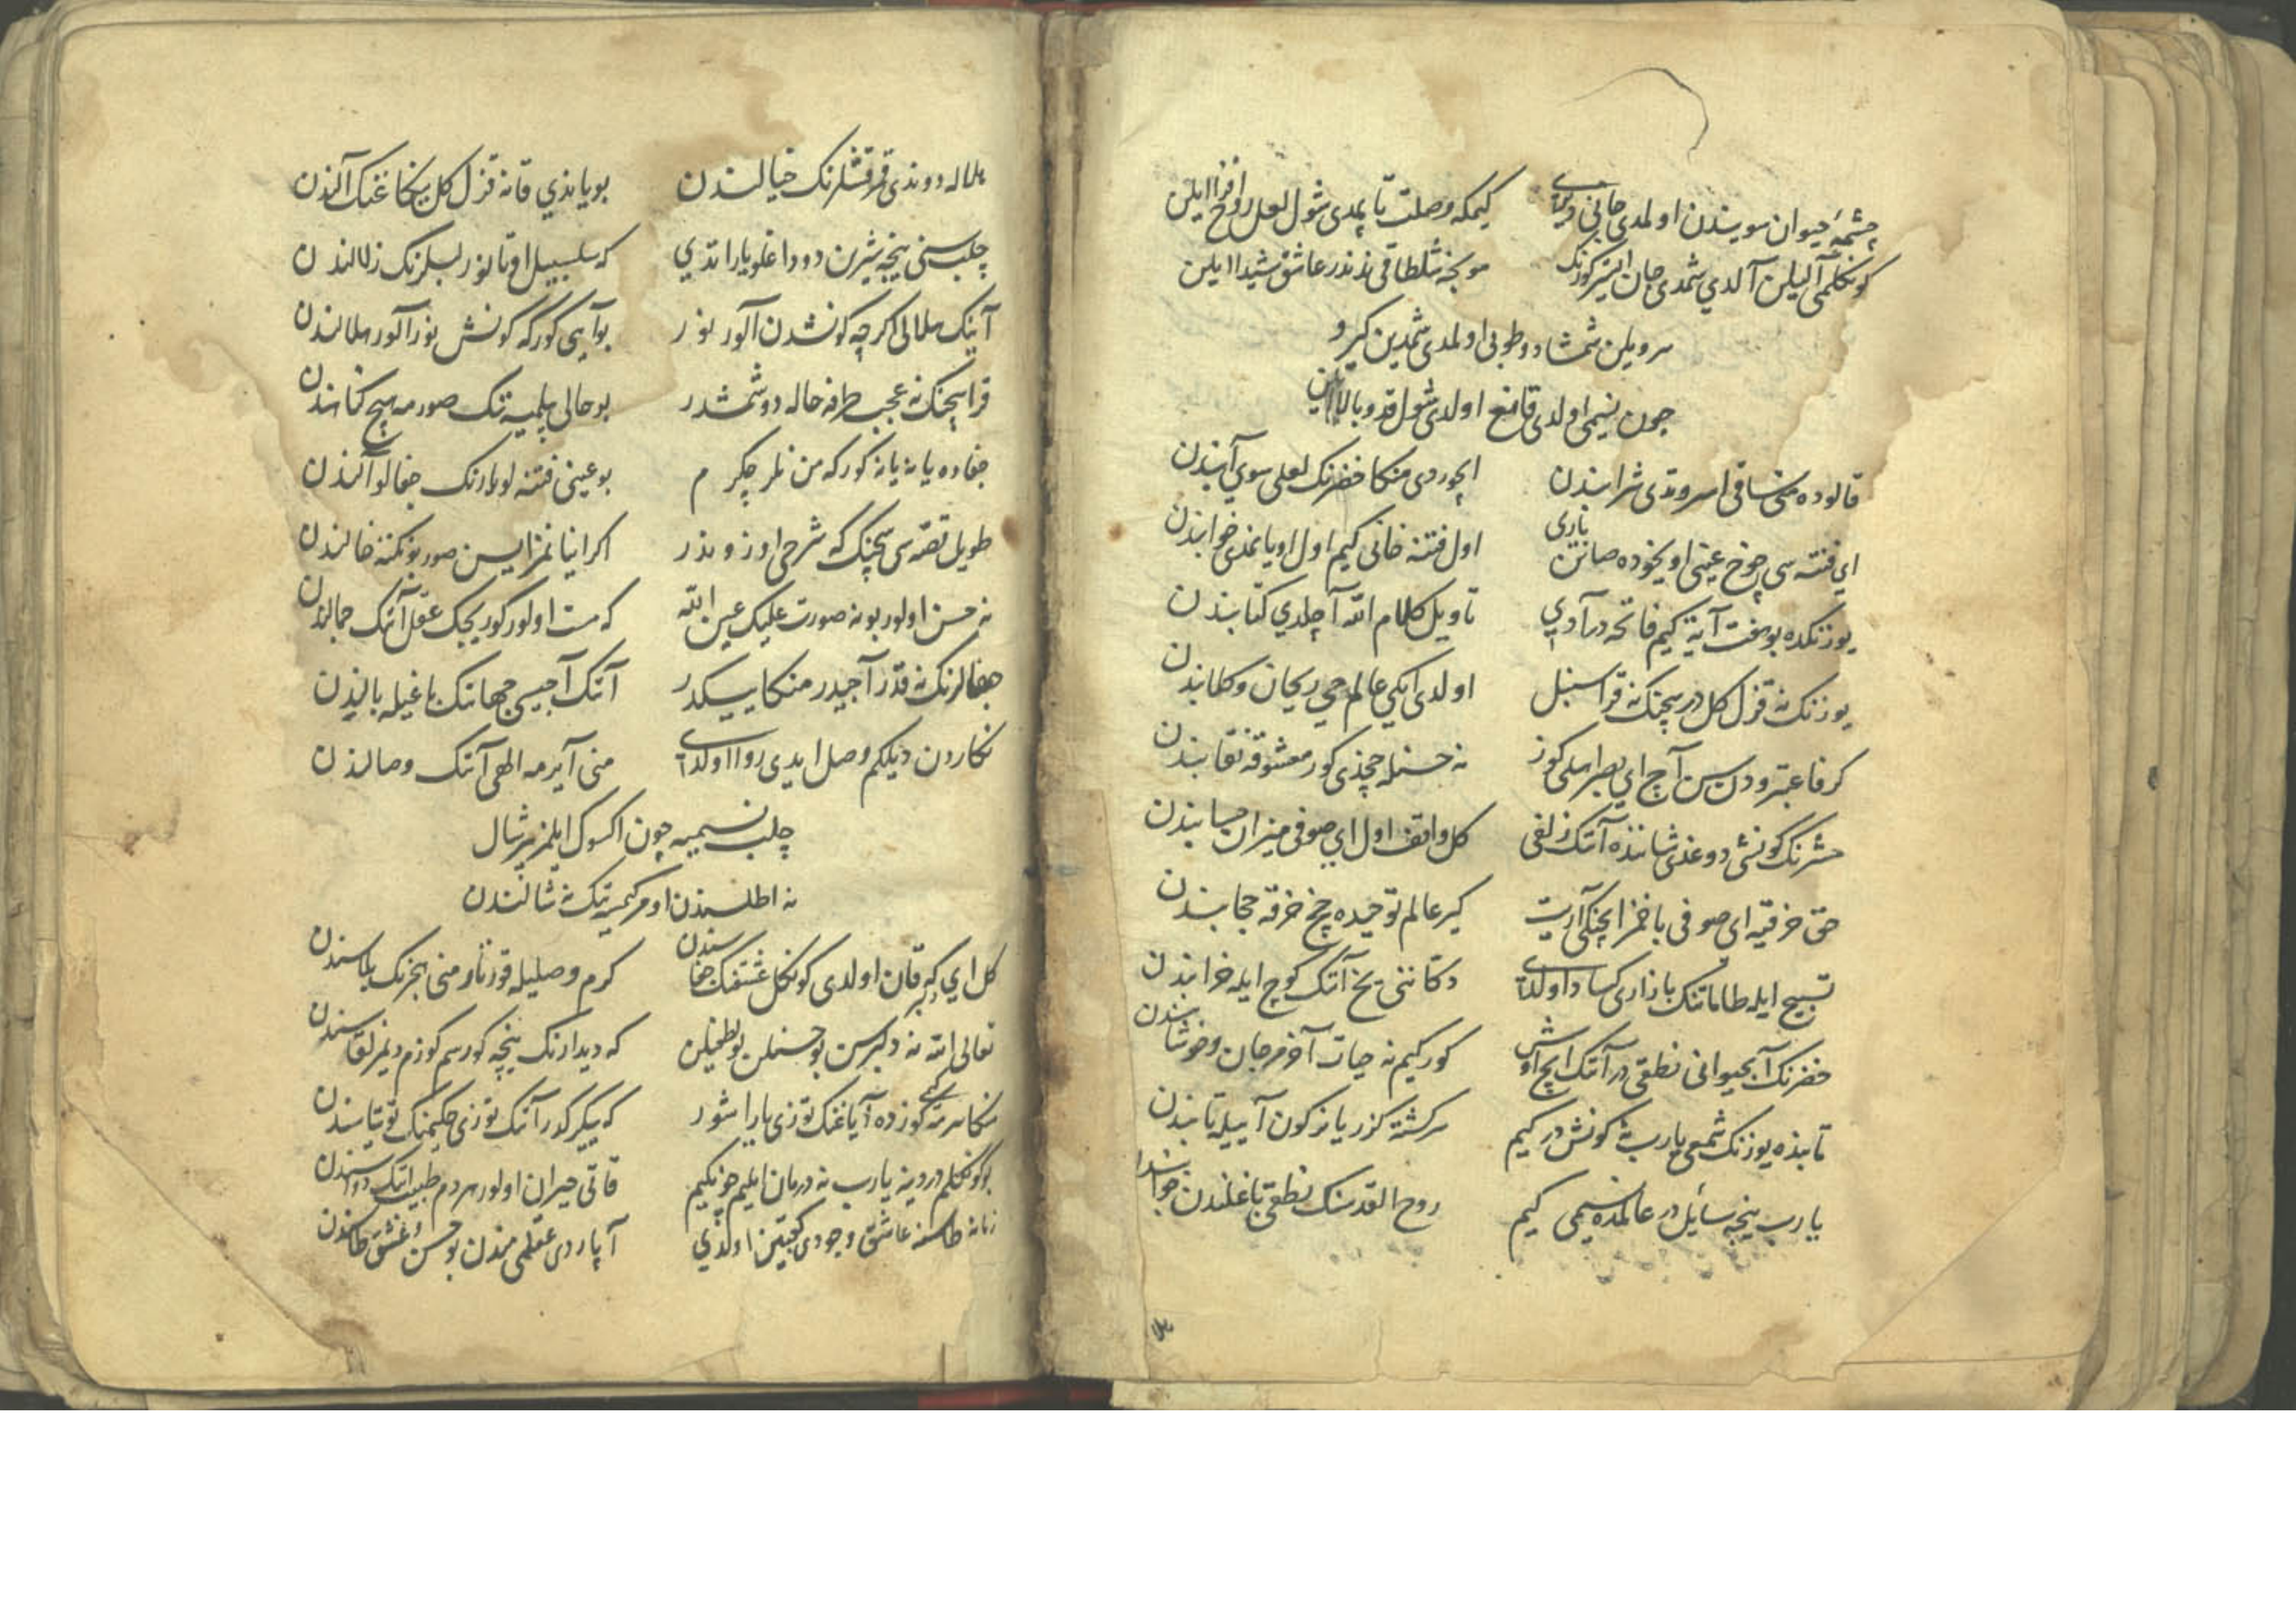 چشمهٔ حیوان سویندن اولدی جانی کیمکه وصلت تاپمدی شول لعل روح افزا ایلن
کونکلمی آلیلن آلدی شمدی جان ایستر کوزنک موبخه شلطاقی عاشق شیدا ایلن
سرویلن شمشاد و طوبی اولمدی شمدین کیرو
چون نسیمی اولدی قانع اولدی شول قد و بالا ایلن
قالوده منی ساقی اسروتدی شرابندن ایچوردی منکا خضرنک لعلی سوی آبندن
ای فتنه سی چوخ عینی اویخوده صانن باری اول فتنه خانی کیم اول اویانمدی خوابندن
یوزنکده بو هفت آیة کیم فاتحه در آدی تاویل کلام الله آچلدی کتابندن
یوزنک نه قزل کل در سچنک نه قرا سنبل اولدی ایکی عالم حی ریحان و کلابندن
کرفاعتبرودن سن آچ ای بصر اهلی کوز نه حسنله چخدی کور معشوقه نقابندن
حشرنک کونشی دوغدی شانده آنک زلفی کل واقف اول ای صوفی میزان حسابندن
حق خرقیه ای صوفی باخمز ایچنکی آریت کیر عالم توحیده چخ خرقه حجابندن
تسبیح ایله طاماتنک بازاری کساد اولدی دکاننی یخ آنک کوچ ایله خرابندن
خضرنک آبحیوانی نطقی در آنک ایچ اوش کور کیم نه حیات آخر مرجان
تابنده یوزنک شمعی یارب نه کونش در کیم سرکشته کزر یانر کون آییله تابندن
یارب نیجه سائل در عالمده نسیمی کیم روح القدسنک نطقی باغلندی جوابندن
هلاله دوندی قمر قشلرنک خیالندن بویاندی قانه قزل کل ینکاغنک آلندن
چلب سنی نیجه شیرن دوداغلو یارا تدی که سلسبیل اوتانور لبلرنک زلالندن
آینک هلالی اکرچه کونشدن آلور نور بو آیی کور که کونش نور آلور هلالندن
قرا سچنک نه عجب طرفه حاله دوشمشدر بو حالی بلمیه تنک صورمه هیچ
جفاده یانه یانه کورکه من نلر چکرم بو عینی فتنه لولرنک جفالو آلندن
طویل قصه سی سچنک که شرحی اوزوندر اکر اینانمز ایسن صور بو نکته نی خالندن
نه حسن اولور بو نه صورت علیک عین الله که مست اولور کوریجک عقل آنک جمالندن
جفالرنک نه قدر آجیدر منکا ییکدر آنک آجیسی جهاننک یاغیله بالندن
نکاردن دیلکم وصل ایدی روا اولدی منی آیرمه الهی آنک وصالندن
چلب نسیمیه چون اکسوک ایلمز بر شال
نه اطلسندن اومر کیمسنه نک نه شالندن
کل ای دلبر که قان اولدی کونکل عشقنک جفاسندن کرم وصلیله قورتار منی هجرنک بلاسندن
تعالی الله نه دلبرسن بو حسنلن بو لطفیلن که دیدارنک نیجه کورسم کوزم دیمز لقاسندن
منکا سرمه کوزده آیاغنک توزی یاراشور که ییکرکدر آنک توزی حکیمنک توتیاسندن
بو کونکلم دردینه یارب نه درمان ایلیم چونکیم قاتی حیران اولور هردم طبیب آنک دواسندن
عاشق وجودی کیتدن اولدی آپاردی عقلمی مندن بو حسن